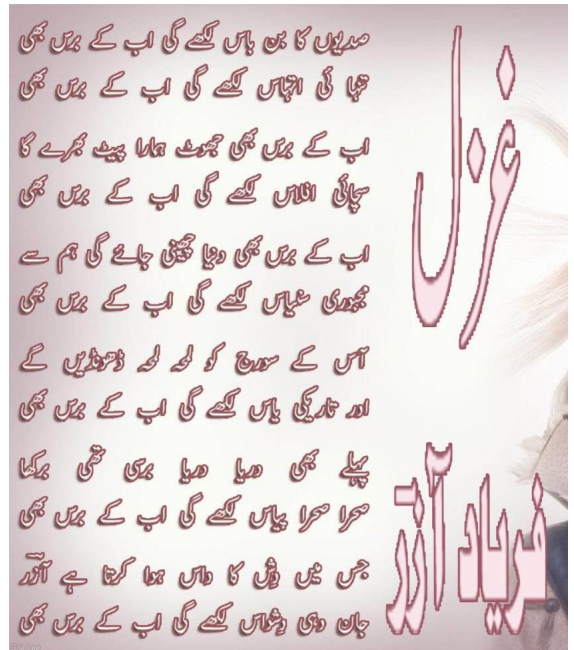 غزل
صدیوں کا بن باس لکھے گی اب کے برس بھی
تنہا ئی اتہاس لکھے گی اب کے برس بھی
اب کے برس بھی جھوٹ ہمارا پیٹ بھرے گا
سچائی افلاس لکھے گی اب کے برس بھی
اب کے برس بھی دنیا چھینی جائے گی ہم سے
مجبوری سنیاس لکھے گی اب کے برس بھی
آس کے سورج کو لمحہ لمحہ ڈھونڈیں گے
اور تاریکی یاس لکھے گی اب کے برس بھی
پہلے بھی دریا دریا برسی تھی برکھا
صحرا صحرا پیاس لکھے گی اب کے برس بھی
جس میں وِش کا واس ہوا کرتا ہے آزر
جان وہی وشواس لکھے گی اب کے برس بھی
فریاد آزر